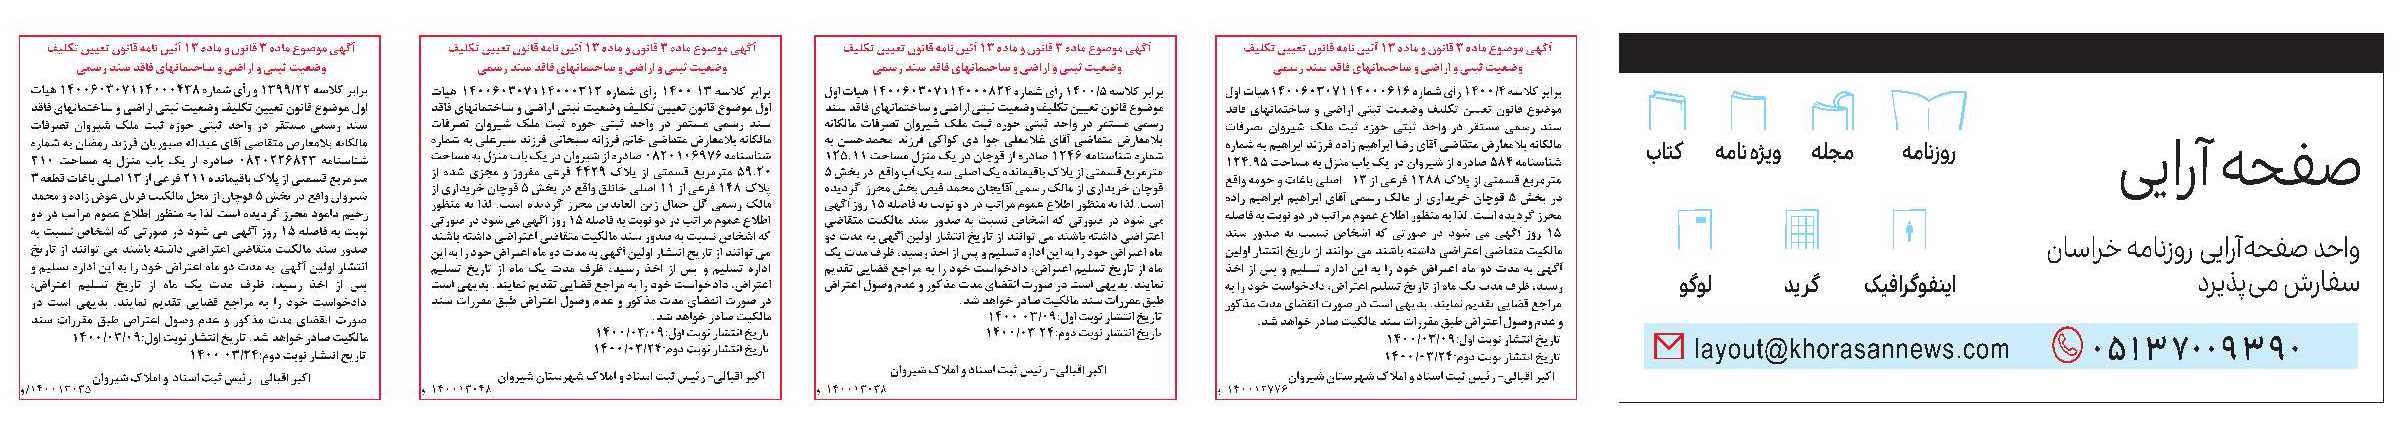 صفحه آرایی
واحد صفحه‌آرایی روزنامه خراسان
سفارش می‌پذیرد
روزنامه
مجله
ویژه نامه
کتاب
اینفوگرافیک
گرید
لوگو
۰۵۱۳۷۰۰۹۳۹۰
layout@khorasannews.com
آگهی موضوع ماده ۳ قانون و ماده ۱۳ آئین نامه قانون تعیین تکلیف
وضعیت ثبتی و اراضی و ساختمانهای فاقد سند رسمی
برابر کلاسه ۱۴۰۰/۴ رأی شماره ۱۴۰۰۶۰۳۰۷۱۱۴۰۰۰۶۱۶ هیات اول
موضوع قانون تعیین تکلیف وضعیت ثبتی اراضی و ساختمانهای فاقد
سند رسمی مستقر در واحد ثبتی حوزه ثبت ملک شیروان تصرفات
مالکانه بلامعارض متقاضی آقای رضا ابراهیم زاده فرزند ابراهیم به شماره
شناسنامه ۵۸۴ صادره از شیروان در یک باب منزل به مساحت ۱۲۴.۹۵
مترمربع قسمتی از پلاک ۱۲۸۸ فرعی از ۱۳ اصلی باغات و حومه واقع
در بخش ۵ قوچان خریداری از مالک رسمی آقای ابراهیم ابراهیم زاده
محرز گردیده است. لذا به منظور اطلاع عموم مراتب در دو نوبت به فاصله
۱۵ روز آگهی می شود در صورتی که اشخاص نسبت به صدور سند
مالکیت متقاضی اعتراضی داشته باشند می توانند از تاریخ انتشار اولین
آگهی به مدت دو ماه اعتراض خود را به این اداره تسلیم و پس از اخذ
رسید، ظرف مدت یک ماه از تاریخ تسلیم اعتراض، دادخواست خود را به
مراجع قضایی تقدیم نمایند. بدیهی است در صورت انقضای مدت مذکور
و عدم وصول اعتراض طبق مقررات سند مالکیت صادر خواهد شد.
تاریخ انتشار نوبت اول: ۱۴۰۰/۰۳/۰۹
تاریخ انتشار نوبت دوم: ۱۴۰۰/۰۳/۲۴
اکبر اقبالی- رئیس ثبت اسناد و املاک شهرستان شیروان
۱۴۰۰۱۳۷۷۶ و
آگهی موضوع ماده ۳ قانون و ماده ۱۳ آئین نامه قانون تعیین تکلیف
وضعیت ثبتی و اراضی و ساختمانهای فاقد سند رسمی
برابر کلاسه ۱۴۰۰/۵ رأی شماره ۱۴۰۰۶۰۳۰۷۱۱۴۰۰۰۸۲۴ هیات اول
موضوع قانون تعیین تکلیف وضعیت ثبتی اراضی و ساختمانهای فاقد سند
رسمی مستقر در واحد ثبتی حوزه ثبت ملک شیروان تصرفات مالکانه
بلامعارض متقاضی آقای غلامعلی جوا دی کواکی فرزند محمدحسن به
شماره شناسنامه ۱۲۴۶ صادره از قوچان در یک منزل مساحت ۱۲۵.۱۱
مترمربع قسمتی از پلاک باقیمانده یک اصلی سه یک آب واقع در بخش ۵
قوچان خریداری از مالک رسمی آقایجان محمد فیض بخش محرز گردیده
است. لذا به منظور اطلاع عموم مراتب در دو نوبت به فاصله ۱۵ روز آگهی
می شود در صورتی که اشخاص نسبت به صدور سند مالکیت متقاضی
اعتراضی داشته باشند می توانند از تاریخ انتشار اولین آگهی به مدت دو
ماه اعتراض خود را به این اداره تسلیم و پس از اخذ رسید، ظرف مدت یک
ماه از تاریخ تسلیم اعتراض، دادخواست خود را به مراجع قضایی تقدیم
نمایند. بدیهی است در صورت انقضای مدت مذکور و عدم وصول اعتراض
طبق مقررات سند مالکیت صادر خواهد شد.
تاریخ انتشار نوبت اول: ۱۴۰۰ ۰۳/۰۹
تاریخ انتشار نوبت دوم: ۱۴۰۰/۰۳ ۲۴
اکبر اقبالی- رئیس ثبت اسناد و املاک شیروان
۱۴۰۰۱۳۰۳۸ و
آگهی موضوع ماده ۳ قانون و ماده ۱۳ آئین نامه قانون تعیین تکلیف
وضعیت ثبتی و اراضی و ساختمانهای فاقد سند رسمی
برابر کلاسه ۱۳ ۱۴۰۰ رأی شماره ۱۴۰۰۶۰۳۰۷۱۱۴۰۰۰۳۱۲ هیات
اول موضوع قانون تعیین تکلیف وضعیت ثبتی اراضی و ساختمانهای فاقد
سند رسمی مستقر در واحد ثبتی حوزه ثبت ملک شیروان تصرفات
مالکانه بلامعارض متقاضی خانم فرزانه سبحانی فرزند شیرعلی به شماره
شناسنامه ۰۸۲۰۱۰۶۹۷۶ صادره از شیروان در یک باب منزل به مساحت
۵۹.۲۰ مترمربع قسمتی از پلاک ۴۴۲۹ فرعی مفروز و مجزی شده از
پلاک ۱۴۸ فرعی از ۱۱ اصلی خانلق واقع در بخش ۵ قوچان خریداری از
مالک رسمی گل جمال زین العابدین محرز گردیده است. لذا به منظور
اطلاع عموم مراتب در دو نوبت به فاصله ۱۵ روز آگهی می شود در صورتی
که اشخاص نسبت به صدور سند مالکیت متقاضی اعتراضی داشته باشند
می توانند از تاریخ انتشار اولین آگهی به مدت دو ماه اعتراض خود را به این
اداره تسلیم و پس از اخذ رسید، ظرف مدت یک ماه از تاریخ تسلیم
اعتراض، دادخواست خود را به مراجع قضایی تقدیم نمایند. بدیهی است
در صورت انقضای مدت مذکور و عدم وصول اعتراض طبق مقررات سند
مالکیت صادر خواهد شد.
تاریخ انتشار نوبت اول: ۱۴۰۰/۰۳/۰۹
تاریخ انتشار نوبت دوم: ۱۴۰۰/۰۳/۲۴
اکبر اقبالی- رئیس ثبت اسناد و املاک شهرستان شیروان
۱۴۰۰۱۳۰۴۸ و
آگهی موضوع ماده ۳ قانون و ماده ۱۳ آئین نامه قانون تعیین تکلیف
وضعیت ثبتی و اراضی و ساختمانهای فاقد سند رسمی
برابر کلاسه ۱۳۹۹/۲۲ و رأی شماره ۱۴۰۰۶۰۳۰۷۱۱۴۰۰۰۴۳۸ هیات
اول موضوع قانون تعیین تکلیف وضعیت ثبتی اراضی و ساختمانهای فاقد
سند رسمی مستقر در واحد ثبتی حوزه ثبت ملک شیروان تصرفات
مالکانه بلامعارض متقاضی آقای عبداله صبوریان فرزند رمضان به شماره
شناسنامه ۰۸۲۰۲۳۶۸۲۳ صادره از یک باب منزل به مساحت ۲۱۰
مترمربع قسمتی از پلاک باقیمانده ۲۱۱ فرعی از ۱۳ اصلی باغات قطعه ۳
شیروان واقع در بخش ۵ قوچان از محل مالکیت قربان عوض زاده و محمد
رحیم داعود محرز گردیده است لذا به منظور اطلاع عموم مراتب در دو
نوبت به فاصله ۱۵ روز آگهی می شود در صورتی که اشخاص نسبت به
صدور سند مالکیت متقاضی اعتراضی داشته باشند می توانند از تاریخ
انتشار اولین آگهی به مدت دو ماه اعتراض خود را به این اداره تسلیم و
پس از اخذ رسید، ظرف مدت یک ماه از تاریخ تسلیم اعتراض،
دادخواست خود را به مراجع قضایی تقدیم نمایند. بدیهی است در
صورت انقضای مدت مذکور و عدم وصول اعتراض طبق مقررات سند
مالکیت صادر خواهد شد. تاریخ انتشار نوبت اول: ۱۴۰۰/۰۳/۰۹
تاریخ انتشار نوبت دوم: ۱۴۰۰ ۰۳/۲۴
اکبر اقبالی- رئیس ثبت اسناد و املاک شیروان
۱۴۰۰۱۳۰۳۵/و